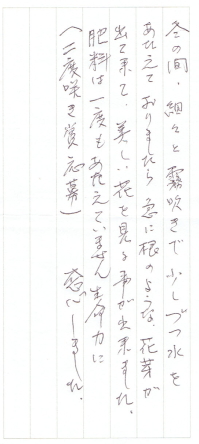 冬の間、細々と霧吹きで少しづつ水を
あたえておりましたら急に根のような、花芽が
出て来て、美しい花を見る事が出来ました。
肥料は一度もあたえていません生命力に
(二度咲き賞応募) 感心しました。